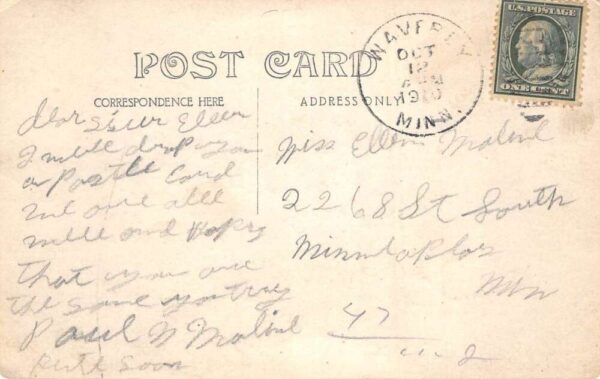 POST CARD
CORRESPONDENCE HERE
ADDRESS ONLY
WAVERLY
OCT
12
MINN.
U.S. POSTAGE
ONE CENT
Dear Sister Ellen
I will drop you
a Postle Card
we are all
well and hopes
that you are
the same
Paul N
soon
Miss Ellen
2268 St South
Minneaplos
Min
47
2